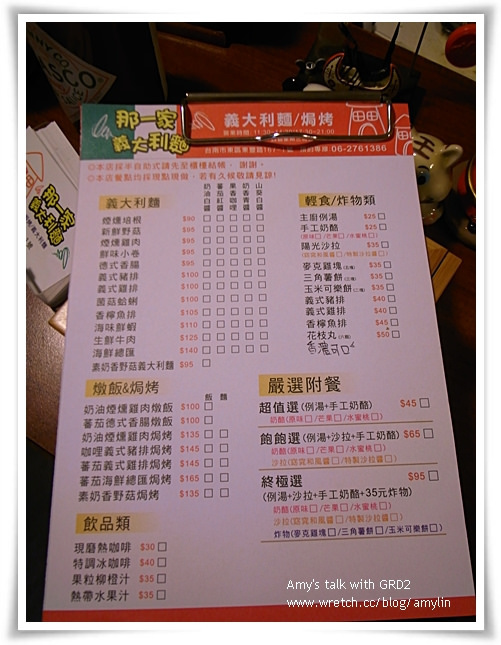 那一家
義大利麵
義大利麵/焗烤
06-2761386
◎本店採半自助式請先至櫃檯結帳，謝謝。
◎本店餐點均採現點現做，若有久候敬請見諒!
義大利麵 奶油白醬 蕃茄紅醬 果香咖哩 奶香青醬 山葵白醬
煙燻培根 $90
新鮮野菇 $95
煙燻雞肉 $95
鮮味小卷 $95
德式香腸 $95
義式豬排 $100
義式雞排 $100
菌菇蛤蜊 $100
香檸魚排 $105
海味鮮蝦 $110
生鮮牛肉 $140
海鮮總匯 $140
素奶香野菇義大利麵 $95
燉飯&焗烤 飯 麵
奶油煙燻雞肉燉飯 $100
蕃茄德式香腸燉飯 $100
奶油煙燻雞肉焗烤 $135
咖哩義式豬排焗烤 $145
蕃茄義式雞排焗烤 $145
蕃茄海鮮總匯焗烤 $165
素奶香野菇焗烤 $135
飲品類
現磨熱咖啡 $30
特調冰咖啡 $40
果粒柳橙汁 $35
熱帶水果汁 $35
輕食/炸物類
主廚例湯 $25
手工奶酪 $25
(原味□/芒果□/水蜜桃□)
陽光沙拉 $35
麥克雞塊 $35
三角薯餅 $35
玉米可樂餅 $35
義式豬排 $40
義式雞排 $40
香檸魚排 $45
花枝丸 $50
嚴選附餐
超值選(例湯+手工奶酪) $45
奶酪(原味□/芒果□/水蜜桃□)
飽飽選(例湯+沙拉+手工奶酪) $65
奶酪(原味□/芒果□/水蜜桃□)
沙拉(窈窕和風醬□/特製沙拉醬□)
終極選 $95
(例湯+沙拉+手工奶酪+35元炸物)
奶酪(原味□/芒果□/水蜜桃□)
沙拉(窈窕和風醬□/特製沙拉醬□)
炸物(麥克雞塊□/三角薯餅□/玉米可樂餅□)
Amy's talk with GRD2
www.wretch.cc/blog/amylin